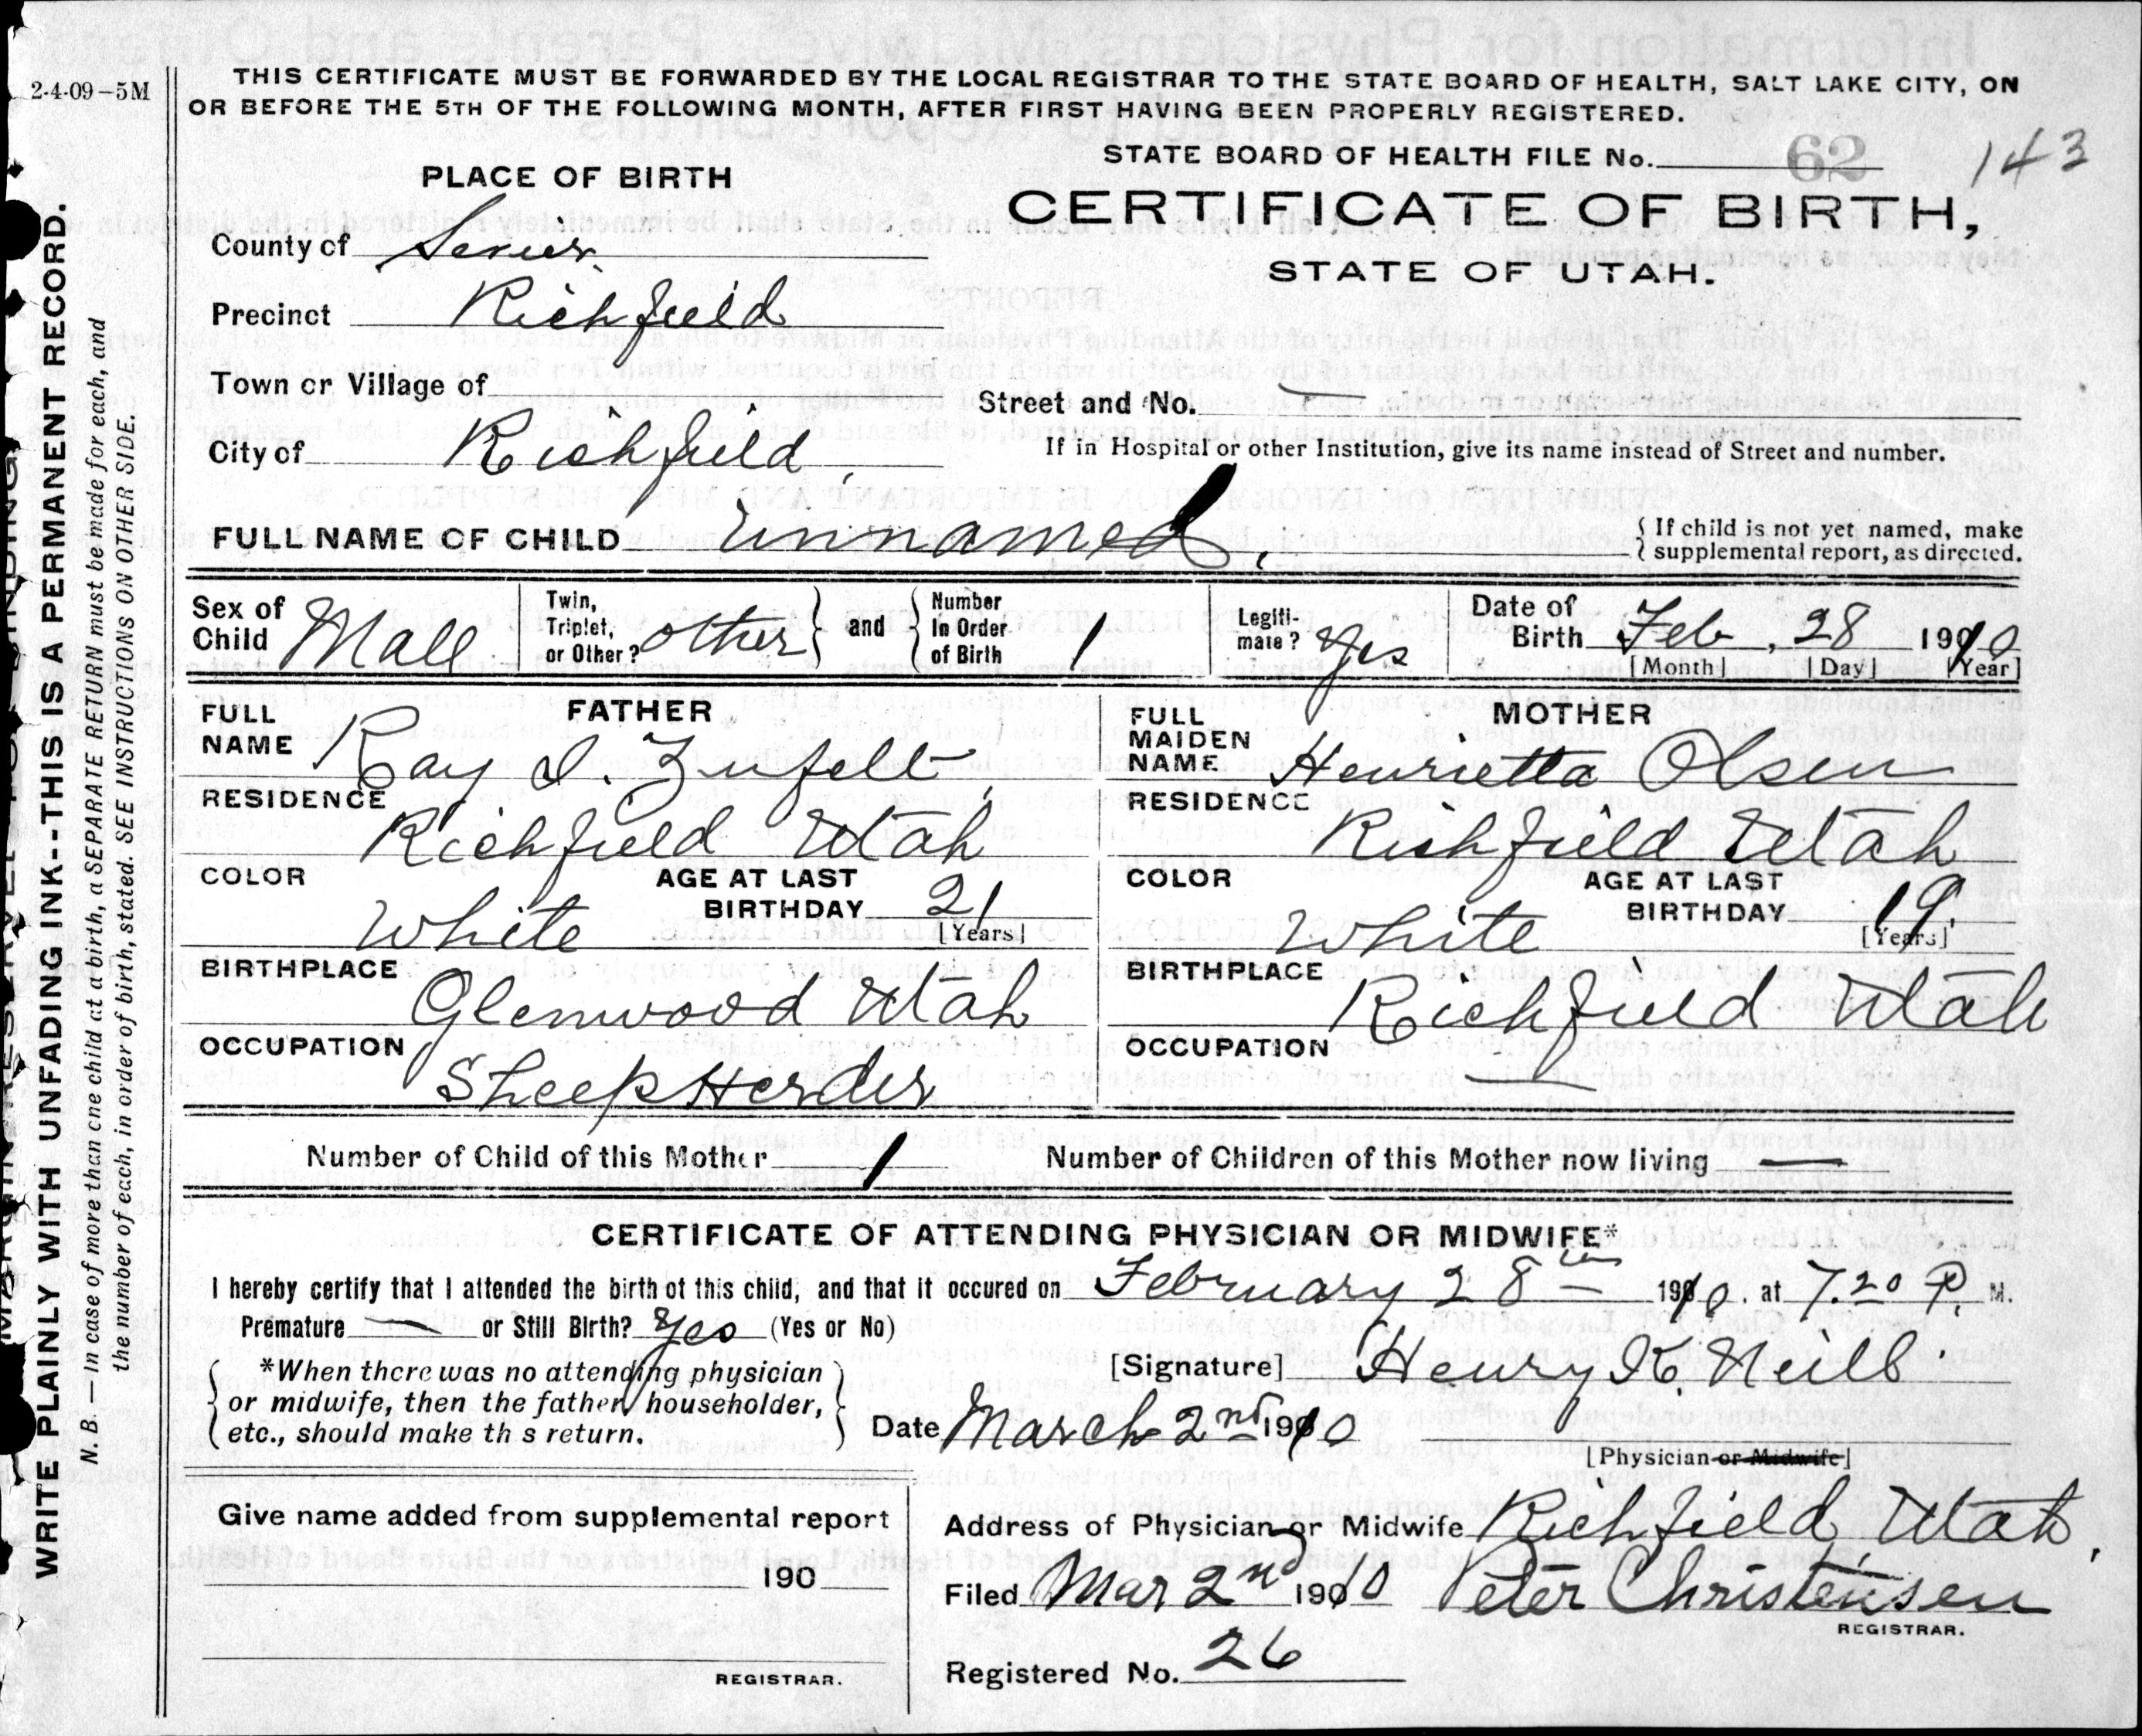 2-4-09-5M
THIS CERTIFICATE MUST BE FORWARDED BY THE LOCAL REGISTRAR TO THE STATE BOARD OF HEALTH, SALT LAKE CITY, ON
OR BEFORE THE 5TH OF THE FOLLOWING MONTH, AFTER FIRST HAVING BEEN PROPERLY REGISTERED.
STATE BOARD OF HEALTH FILE No. 62 143
PLACE OF BIRTH
CERTIFICATE OF BIRTH,
STATE OF UTAH.
County of Sevier
Precinct Richfield
Town or Village of
Street and No. —
City of Richfield,
If in Hospital or other Institution, give its name instead of Street and number.
FULL NAME OF CHILD Unnamed.
{ If child is not yet named, make
supplemental report, as directed.
Sex of Child Male
Twin, Triplet, or Other? other } and { Number In Order of Birth 1
Legiti-mate? Yes
Date of Birth Feb, 28 1910
[Month] [Day] [Year]
FATHER
FULL NAME Ray I. Zufelt,
RESIDENCE
Richfield Utah
COLOR White
AGE AT LAST BIRTHDAY 21 [Years]
BIRTHPLACE
Glenwood Utah
OCCUPATION
SheepHerder
MOTHER
FULL MAIDEN NAME Henrietta Olsen
RESIDENCE
Richfield Utah
COLOR White
AGE AT LAST BIRTHDAY 19. [Years]
BIRTHPLACE
Richfield Utah
OCCUPATION —
Number of Child of this Mother 1 Number of Children of this Mother now living —
CERTIFICATE OF ATTENDING PHYSICIAN OR MIDWIFE*
I hereby certify that I attended the birth of this child, and that it occured on February 28th 1910. at 7.20 P. M.
Premature — or Still Birth? Yes (Yes or No)
{ *When there was no attending physician
or midwife, then the father, householder,
etc., should make th s return. }
[Signature] Henry K. Neill
Date March 2nd 1910
[Physician or Midwife]
Give name added from supplemental report
190
REGISTRAR.
Address of Physician or Midwife Richfield, Utah.
Filed Mar 2nd 1910 Peter Christensen
REGISTRAR.
Registered No. 26
WRITE PLAINLY WITH UNFADING INK--THIS IS A PERMANENT RECORD.
N. B.—In case of more than one child at a birth, a SEPARATE RETURN must be made for each, and
the number of each, in order of birth, stated. SEE INSTRUCTIONS ON OTHER SIDE.